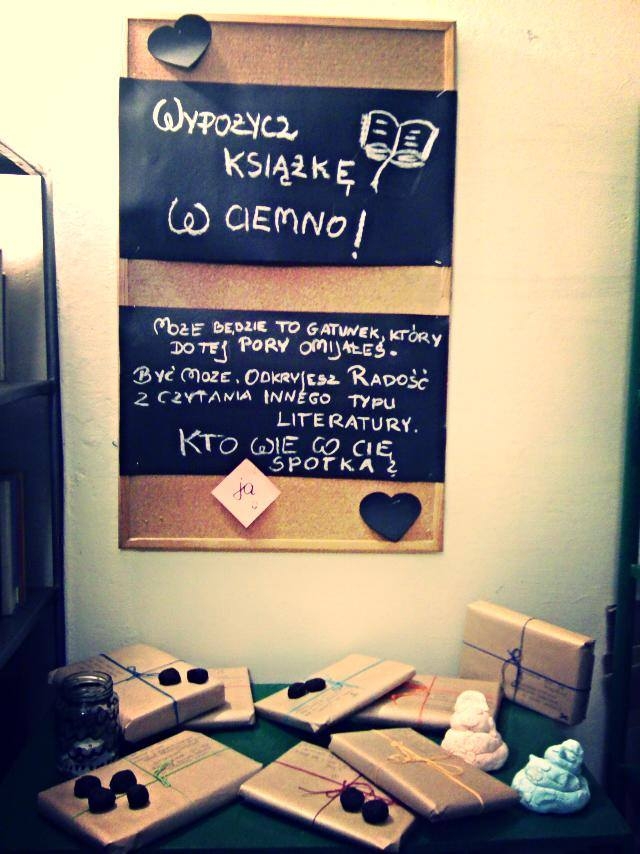 WYPOŻYCZ
KSIĄŻKĘ
W CIEMNO!
MOŻE BĘDZIE TO GATUNEK, KTÓRY
DO TEJ PORY OMIJAŁEŚ.
BYĆ MOŻE, ODKRYJESZ RADOŚĆ
Z CZYTANIA INNEGO TYPU
LITERATURY.
KTO WIE CO CIĘ
SPOTKA?
ja